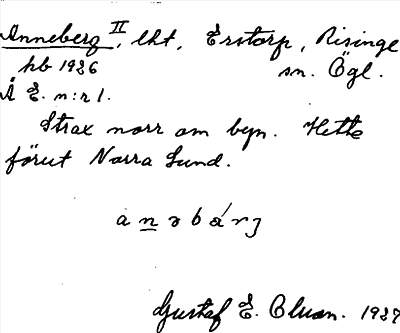 Anneberg II, lht, Erstorp, Risinge
hb 1926 sn. Ögl.
Å E. n:r 1.
Strax norr om byn. Hette
förut Norra Lund.
Gustaf E. 1927